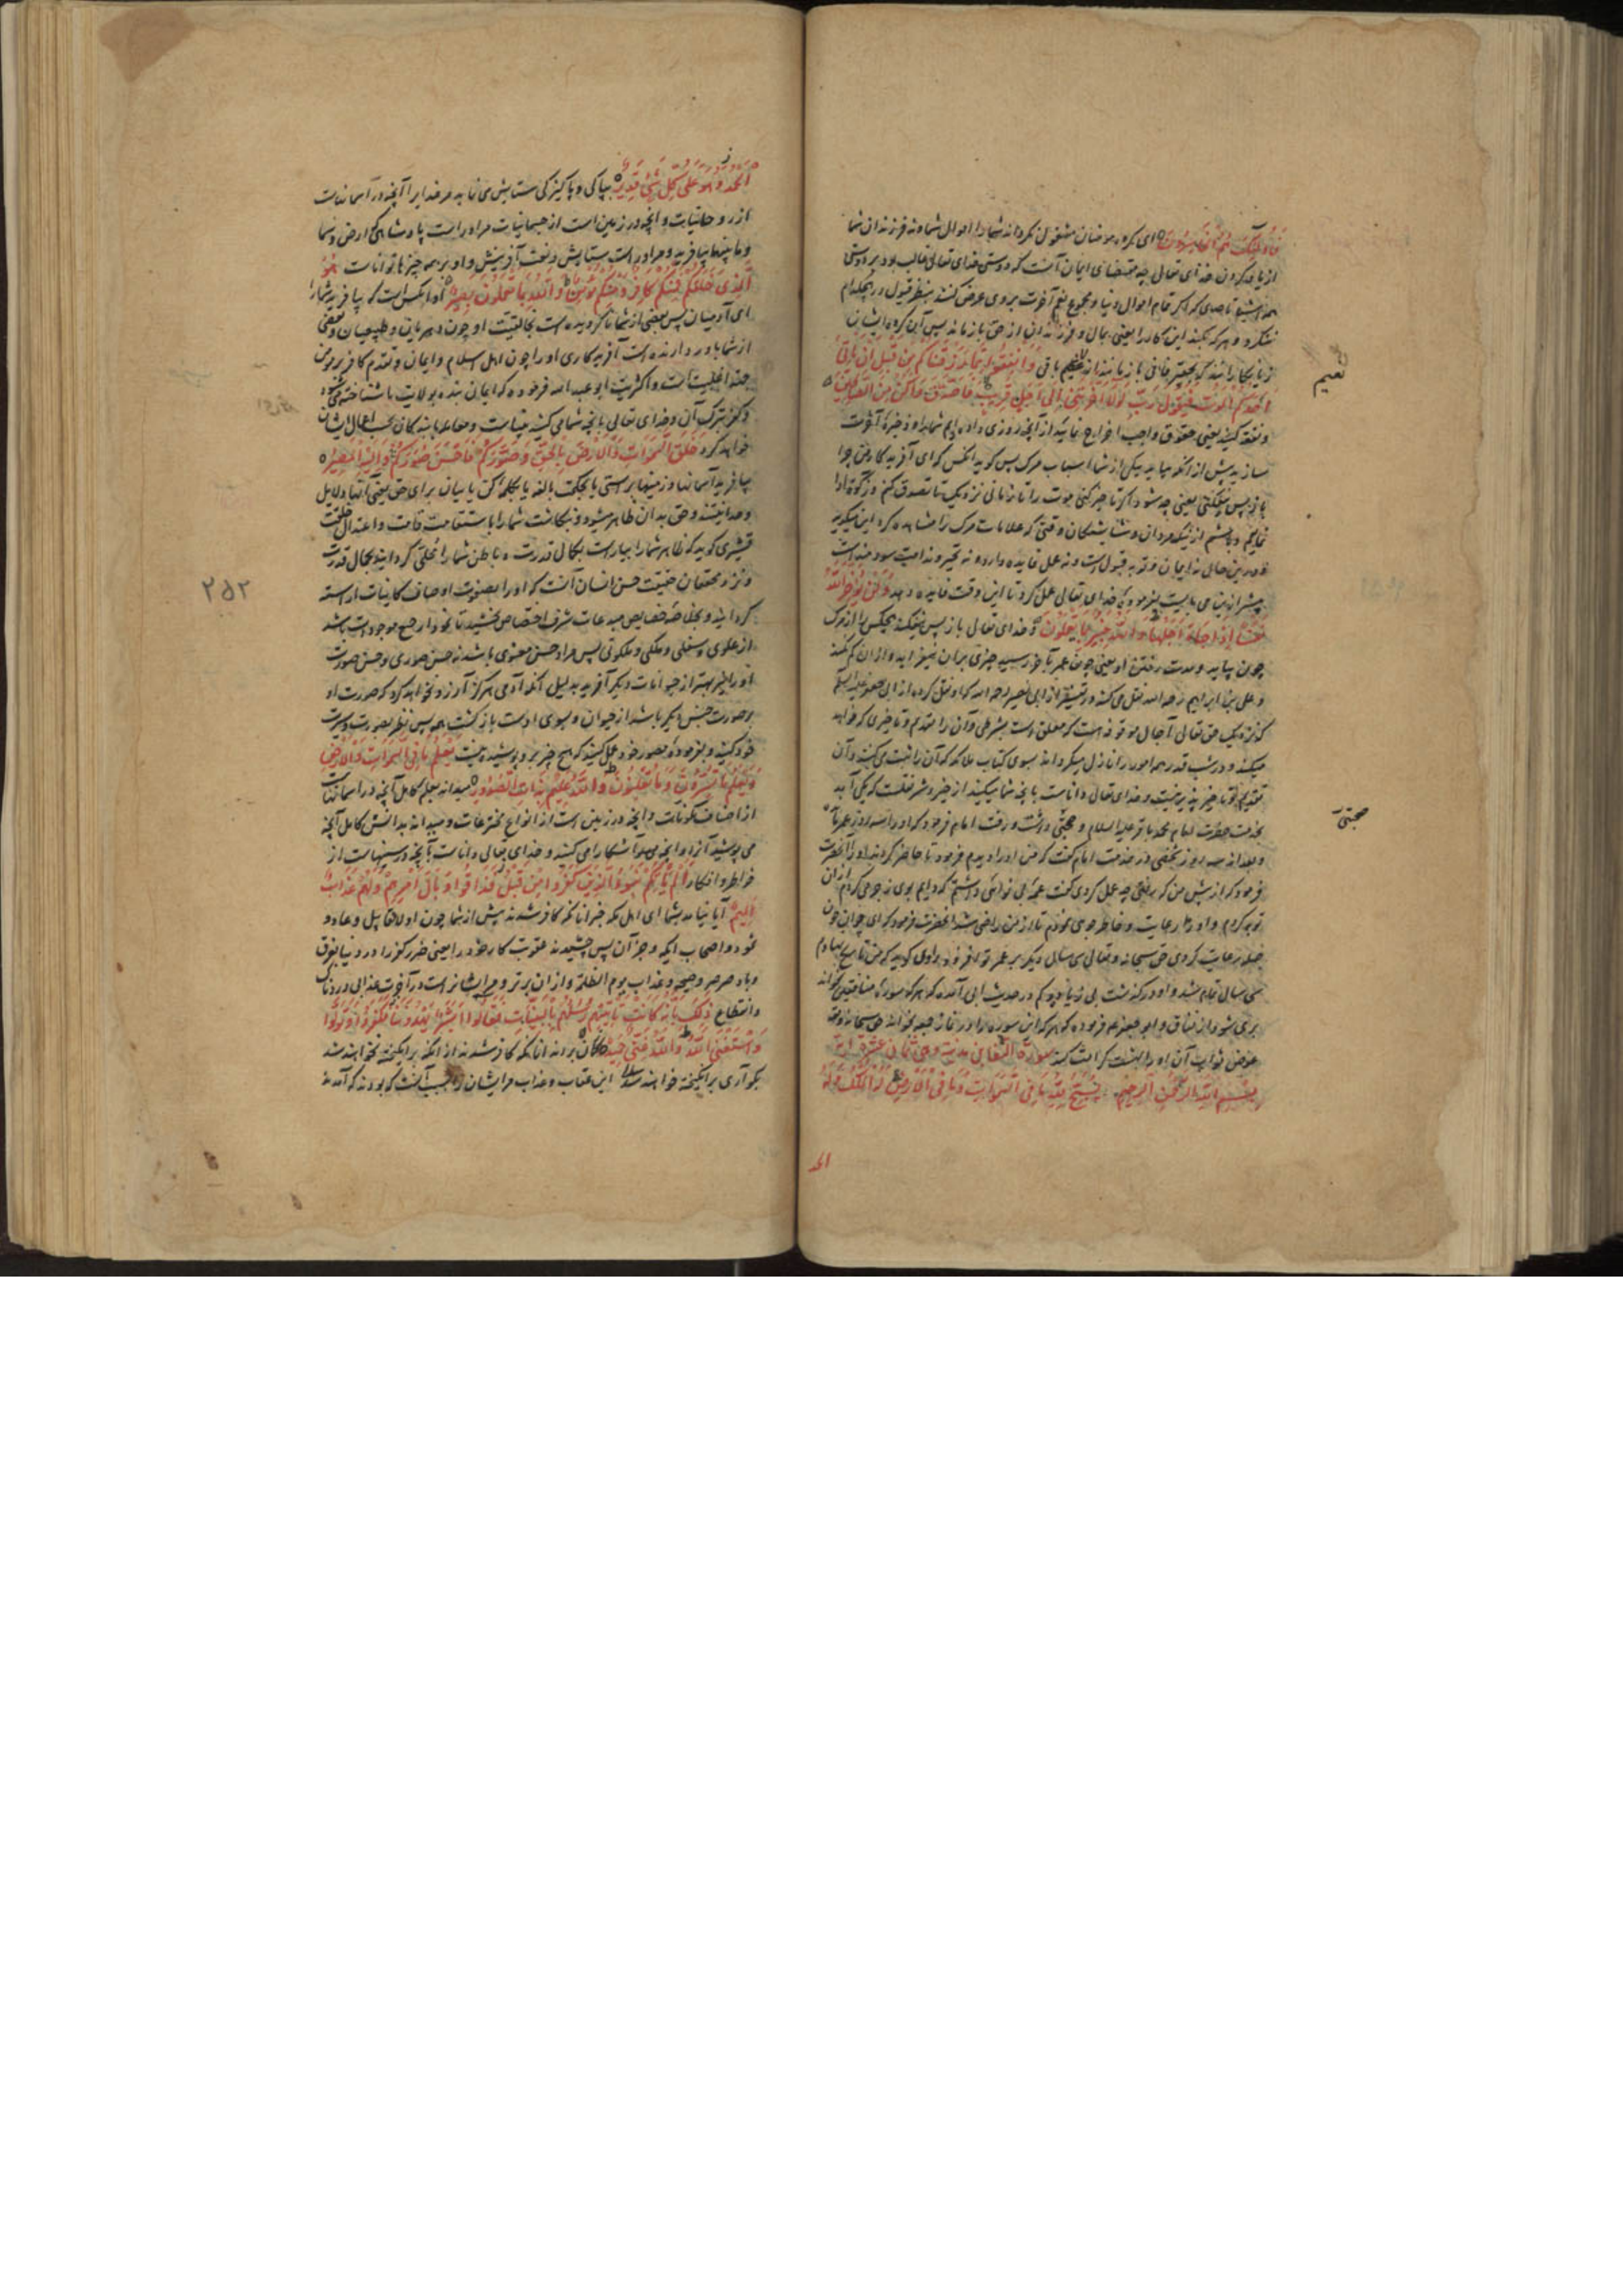 فَاُولٰئِكَ هُمُ الْخاسِرُونَ ای گروه مومنان مشغول نکرداند شما را اموال شما و نه فرزندان شما
از یاد کردن خدای تعالی چه مقتضای ایمان آنست که دوستی خدای تعالی غالب بود بر دوستی
همه اشیا تا حدی که اکر تمام اموال دنیا و مجموع نعیم آخرت بر وی عرض کنند بنظر قبول در هیچکدام
ننکرد و هر که بکند این کار را یعنی بمال و فرزندان از حق باز ماند پس آن کروه ایشان
زیان کارانند که بچیز فانی باز مانند از نعیم باقی وَاَنْفِقُوا مِمّا رَزَقْناكُمْ مِنْ قَبْلِ اَنْ يَأْتِيَ
اَحَدَكُمُ الْمَوْتُ فَيَقُولَ رَبِّ لَوْلا اَخَّرْتَنِي اِلى اَجَلٍ قَرِيبٍ فَاَصَّدَّقَ وَاَكُنْ مِنَ الصّالِحِينَ
و نفقه کنید یعنی حقوق واجب اخراج نمائید از آنچه روزی داده ایم شما را و ذخیرۀ آخرت
سازید پیش از انکه بیاید بیکی از شما اسباب مرک پس کوید انکس که ای آفریدکار من چرا
باز پس نیفکنی یعنی چه شود اکر تاخیر کنی موت را تا زمانی نزدیک تا تصدق کنم و زکوة ادا
نمایم و باشم از نیک مردان و شایستکان وقتی که علامات مرک را مشاهده کرد این میکوید
و درین حال نه ایمان و توبه قبولست و نه عمل فایده دارد و نه تحیر و ندامت سود مندست
پیشتر ازین می بایست بفرمودۀ خدای تعالی عمل کرد تا این وقت فایده دهد وَلَنْ يُؤَخِّرَ اللّٰهُ
نَفْسًا اِذا جاءَ اَجَلُها وَاللّٰهُ خَبِيرٌ بِما تَعْمَلُونَ و خدای تعالی باز پس نیفکند هیچکس را از مرک
چون بیاید و مدت رفتن او یعنی چون عمر بآخر رسید چیزی بران نیفزاید و ازان کم نکند
و علی بن ابراهیم رحمه الله نقل می کند در تفسیر از ابی بصیر رحمه الله که او نقل کرده از ابی جعفر علیه السلم
که نزدیک حق تعالی آجال موقوفه است که معلق است بشرطی و آن را تقدیم و تاخیری که خواهد
میکند و در شب قدر همه امور را نازل میکرداند بسوی کتاب ملائکه که آن را ثبت می کنند و آن
تقدیم و تاخیر پذیر نیست و خدای تعالی داناست بانچه شما میکنید از خیر و شر نقلست که یکی آمد
بخدمت حضرت امام محمد باقر علیه السلام و صحبتی داشت و رفت امام فرمود که او را سه روز عمر ماند
و بعد از سه روز شخصی در خدمت امام کفت که من او را دیدم فرمود تا حاضر کردند او را آنحضرت
فرمود که از پیش من که رفتی چه عمل کردی کفت عمۀ بی نوائی داشتم که دایم بوی زجر می کردم ازان
توبه کردم و او را رعایت و خاطر جوئی نمودم تا از من راضی شد آنحضرت فرمود که ای جوان چون
صله رعایت کردی حق سبحانه و تعالی سی سال دیکر بر عمر تو افزود راوی کوید که من تاریخ نهادم
سی سال تمام شد و او درکذشت بی زیاد و کم در حدیث ابی آمده که هر که سورۀ منافقین خواند
بری شود از نفاق و ابو جعفر ع فرموده که هر که این سوره را در نماز جمعه بخواند حق سبحانه و تع
عوض ثواب آن او را بهشت کرامت کند سورة التغابن مدنیة وهی ثمانی عشرة آیة
بِسْمِ اللّٰهِ الرَّحْمٰنِ الرَّحِيمِ يُسَبِّحُ لِلّٰهِ ما فِي السَّمٰواتِ وَما فِي الْاَرْضِ لَهُ الْمُلْكُ وَلَهُ
الحمد
نعیم
صحبتی
الْحَمْدُ وَهُوَ عَلى كُلِّ شَيْءٍ قَدِيرٌ بپاکی و پاکیزکی ستایش می نماید مر خدایرا آنچه در آسمانهاست
از روحانیات و انچه در زمین است از جسمانیات مر او راست پادشاهی ارض و سما
و ما بینهما بیافرید و مر او راست ستایش و نعمت آفرینش و او بر همه چیزها تواناست هُوَ
الَّذِي خَلَقَكُمْ فَمِنْكُمْ كافِرٌ وَمِنْكُمْ مُؤْمِنٌ وَاللّٰهُ بِما تَعْمَلُونَ بَصِيرٌ او انکس است که بیافرید شما را
ای آدمیان پس بعضی از شما ناکرویده است بخالقیت او چون دهریان و طبیعیان و بعضی
از شما باور دارنده است آفریدکاری او را چون اهل اسلام و ایمان و تقدم کافر بر مومن
جهة اغلبیت است و اکثریت ابو عبد الله فرموده که ایمان بنده بولایت ما شناخته می شود
و کفر بترک آن و خدای تعالی بانچه شما می کنید بیناست و معامله با بندکان بحسب اعمال ایشان
خواهد کرد خَلَقَ السَّمٰواتِ وَالْاَرْضَ بِالْحَقِّ وَصَوَّرَكُمْ فَاَحْسَنَ صُوَرَكُمْ وَاِلَيْهِ الْمَصِيرُ
بیافرید آسمانها و زمینها براستی یا بحکمت بالغه یا بکلمۀ کن یا بیان برای حق یعنی آنها دلایل
وحدانیتند و حق بدان ظاهر میشود و بنکاشت شما را باستقامت قامت و اعتدال خلقت
قشیری کوید که ظاهر شما را بیاراست بکمال قدرت و باطن شما را محلی کردانید بجمال قدرت
و نزد محققان حقیقت حسن انسان آنست که او را بصفوت اوصاف کاینات اراسته
کردانید و بخلاصه خصایص مبدعات شرف اختصاص بخشید تا نمودار جمیع موجودات باشد
از علوی و سفلی و ملکی و ملکوتی پس مراد حسن معنوی باشد نه حسن صوری و حسن صورت
او را نیز بهتر از حیوانات دیکر آفرید بدلیل آنکه آدمی هرکز آرزو نخواهد کرد که صورت او
بر صورت جنس دیکر باشد از حیوان و بسوی اوست بازکشت همه پس نظر بصورت و سیرت
خود کنید و بفرمودۀ مصور خود عمل کنید که هیچ چیز برو پوشیده نیست يَعْلَمُ ما فِي السَّمٰواتِ وَالْاَرْضِ
وَيَعْلَمُ ما تُسِرُّونَ وَما تُعْلِنُونَ وَاللّٰهُ عَلِيمٌ بِذاتِ الصُّدُورِ میداند بعلم کامل آنچه در اسمانهاست
از اصناف مکونات و انچه در زمین است از انواع مخترعات و میداند بدانش کامل آنچه
می پوشید آنرا و انچه می آشکارا می کنید و خدای تعالی داناست بآنچه در سینهاست از
خواطر و افکار اَلَمْ يَأْتِكُمْ نَبَؤُا الَّذِينَ كَفَرُوا مِنْ قَبْلُ فَذاقُوا وَبالَ اَمْرِهِمْ وَلَهُمْ عَذابٌ
اَلِيمٌ آیا نیامد بشما ای اهل مکه خبر انانکه کافر شدند پیش از شما چون اولاد قابیل و عاد و
ثمود و اصحاب ایکه و جز آن پس چشیدند عقوبت کار خود را یعنی ضرر کفر را در دنیا بغرق
و باد صرصر و صیحه و عذاب یوم الظله و ازان بر تر و مر ایشانراست در آخرت عذابی دردناک
و انقطاع ذٰلِكَ بِاَنَّهُ كانَتْ تَأْتِيهِمْ رُسُلُهُمْ بِالْبَيِّناتِ فَقالُوا اَبَشَرٌ يَهْدُونَنا فَكَفَرُوا وَتَوَلَّوْا
وَاسْتَغْنَى اللّٰهُ وَاللّٰهُ غَنِيٌّ حَمِيدٌ کمان بردند انانکه کافر شدند از انکه برانکیخته نخواهند شد
بکو آری برانکیخته خواهند شد این عقاب و عذاب مر ایشان را بسبب آنست که بودند که آمدند
۲۵۲